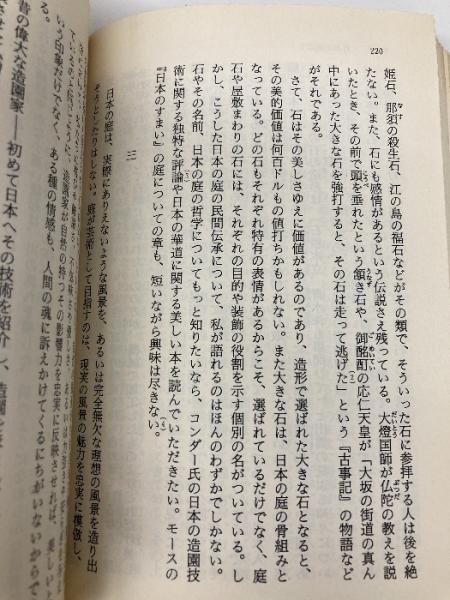 220
姫石、那須の殺生石、江の島の福石などがその類で、そういった石に参拝する人は後を絶
たない。また、石にも感情があるという伝説さえ残っている。大燈国師が仏陀の教えを説
いたとき、その前で頭を垂れたという頷き石や、御酩酊の応仁天皇が「大坂の街道の真ん
中にあった大きな石を強打すると、その石は走って逃げた」という『古事記』の物語など
がそれである。
さて、石はその美しさゆえに価値があるのであり、造形で選ばれた大きな石となると、
その美的価値は何百ドルもの値打ちかもしれない。また大きな石は、日本の庭の骨組みと
なっている。どの石もそれぞれ特有の表情があるからこそ、選ばれているだけでなく、庭
石や屋敷まわりの石には、それぞれの目的や装飾の役割を示す個別の名がついている。し
かし、こうした日本の庭の民間伝承について、私が語れるのはほんのわずかでしかない。
石やその名前、日本の庭の哲学についてもっと知りたいなら、コンダー氏の日本の造園技
術に関する独特な評論や日本の華道に関する美しい本を読んでいただきたい。モースの
『日本のすまい』の庭についての章も、短いながら興味は尽きない。
三
日本の庭は、実際にありえないような風景を、あるいは完全無欠な理想の風景を造り出
そうとしたりはしない。庭が芸術として目指すのは、現実の風景の魅力を忠実に模倣し、
造園家が自然の持つその影響力を忠実に反映させれば、美しいと
いう印象だけでなく、ある種の情感も、人間の魂に訴えかけてくるにちがいないからで
昔の偉大な造園家――初めて日本へその技術を紹介し、造園を